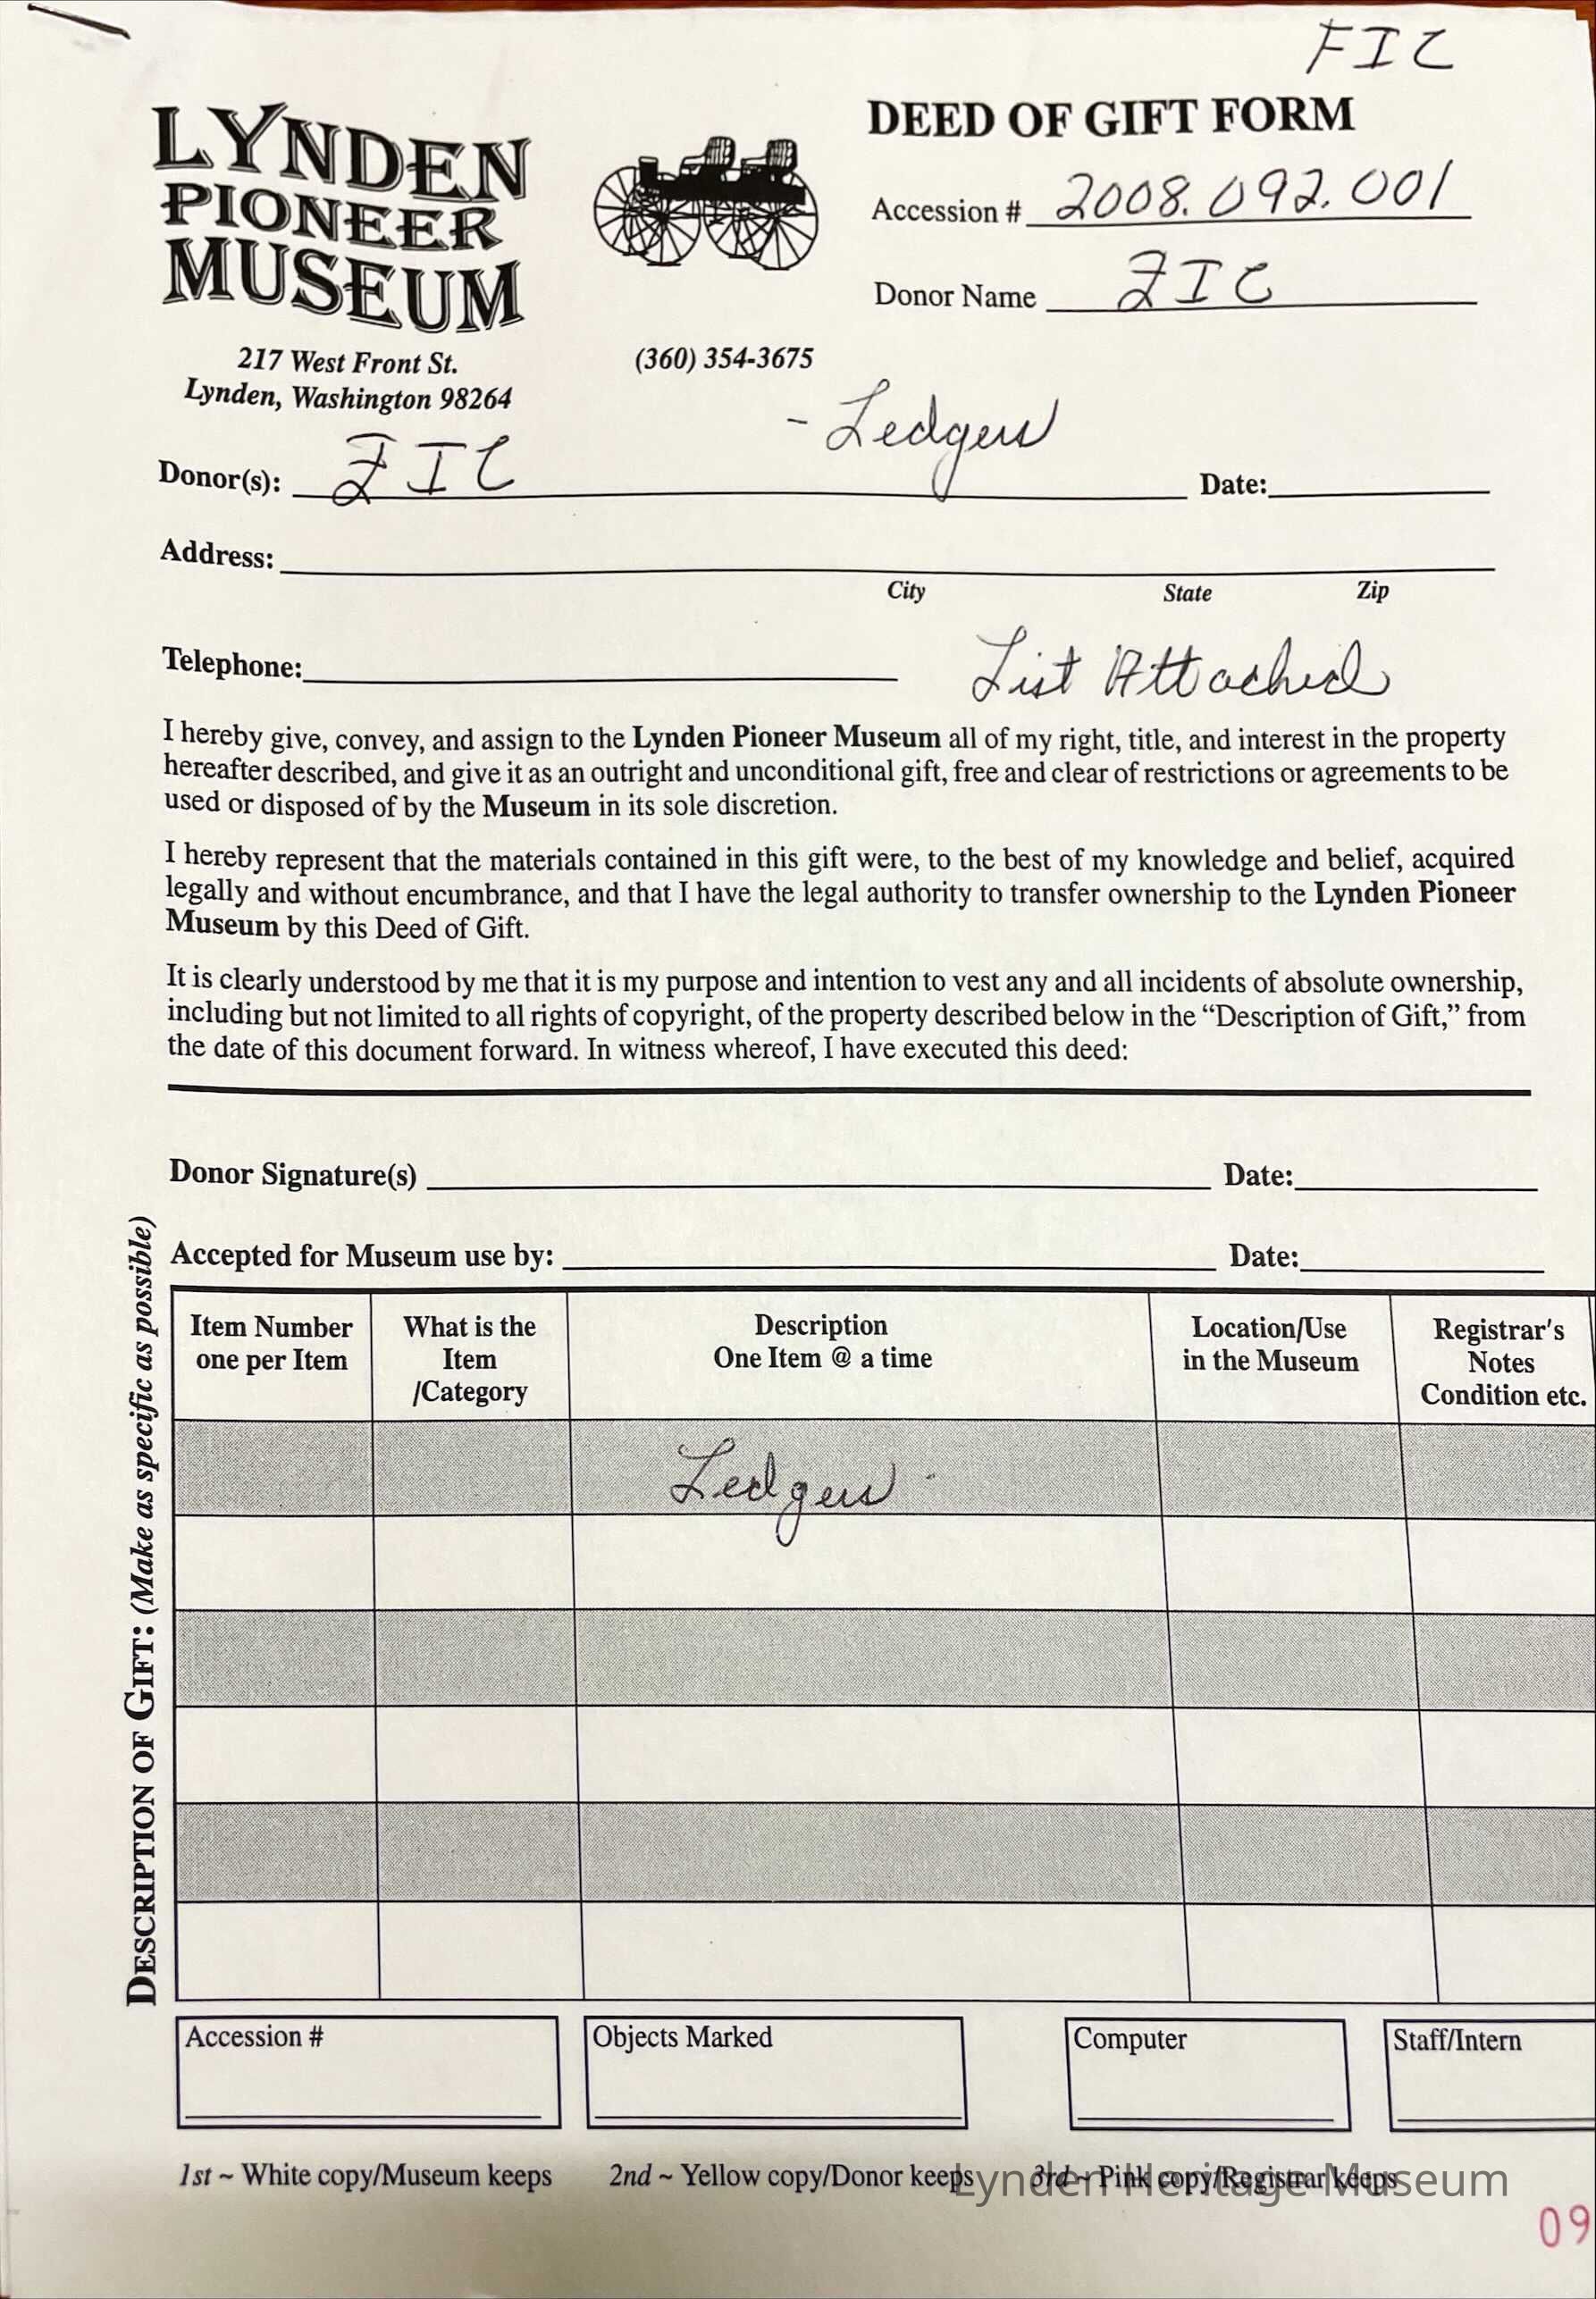 FIC
LYNDEN
PIONEER
MUSEUM
217 West Front St.
Lynden, Washington 98264
(360) 354-3675
DEED OF GIFT FORM
Accession # 2008.092.001
Donor Name FIC
- Ledgers
Donor(s): FIC Date:
Address:
City State Zip
Telephone: List Attached
I hereby give, convey, and assign to the Lynden Pioneer Museum all of my right, title, and interest in the property
hereafter described, and give it as an outright and unconditional gift, free and clear of restrictions or agreements to be
used or disposed of by the Museum in its sole discretion.
I hereby represent that the materials contained in this gift were, to the best of my knowledge and belief, acquired
legally and without encumbrance, and that I have the legal authority to transfer ownership to the Lynden Pioneer
Museum by this Deed of Gift.
It is clearly understood by me that it is my purpose and intention to vest any and all incidents of absolute ownership,
including but not limited to all rights of copyright, of the property described below in the “Description of Gift,” from
the date of this document forward. In witness whereof, I have executed this deed:
Donor Signature(s) Date:
Accepted for Museum use by: Date:
DESCRIPTION OF GIFT: (Make as specific as possible)
Item Number What is the Description Location/Use Registrar's
one per Item Item One Item @ a time in the Museum Notes
/Category Condition etc.
Ledgers
Accession # Objects Marked Computer Staff/Intern
1st ~ White copy/Museum keeps 2nd ~ Yellow copy/Donor keeps 3rd ~ Pink copy/Registrar keeps
Lynden Heritage Museum
09